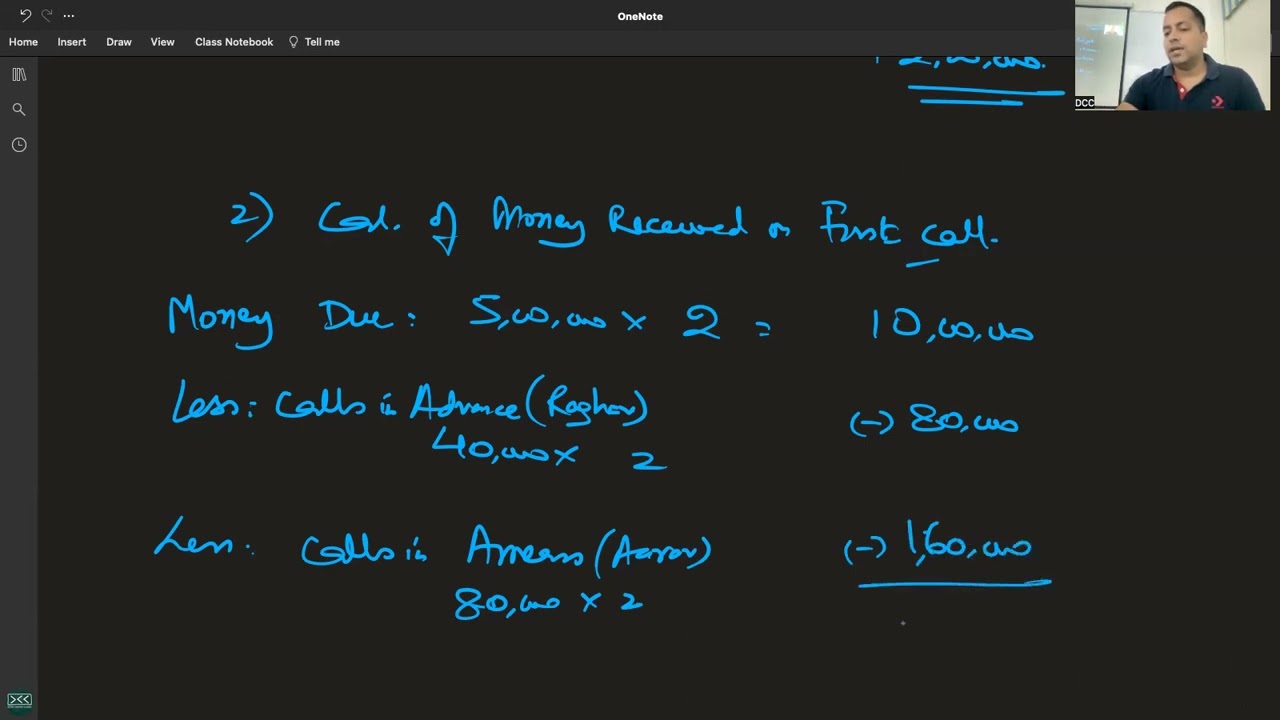 OneNote
Home Insert Draw View Class Notebook Tell me
DCC
2) Cal. of Money Received on First call.
Money Due: 5,00,000 x 2 = 10,00,000
Less: Calls in Advance (Raghav) (-) 80,000
40,000 x 2
Less: Calls in Arrears (Aarav) (-) 1,60,000
80,000 x 2